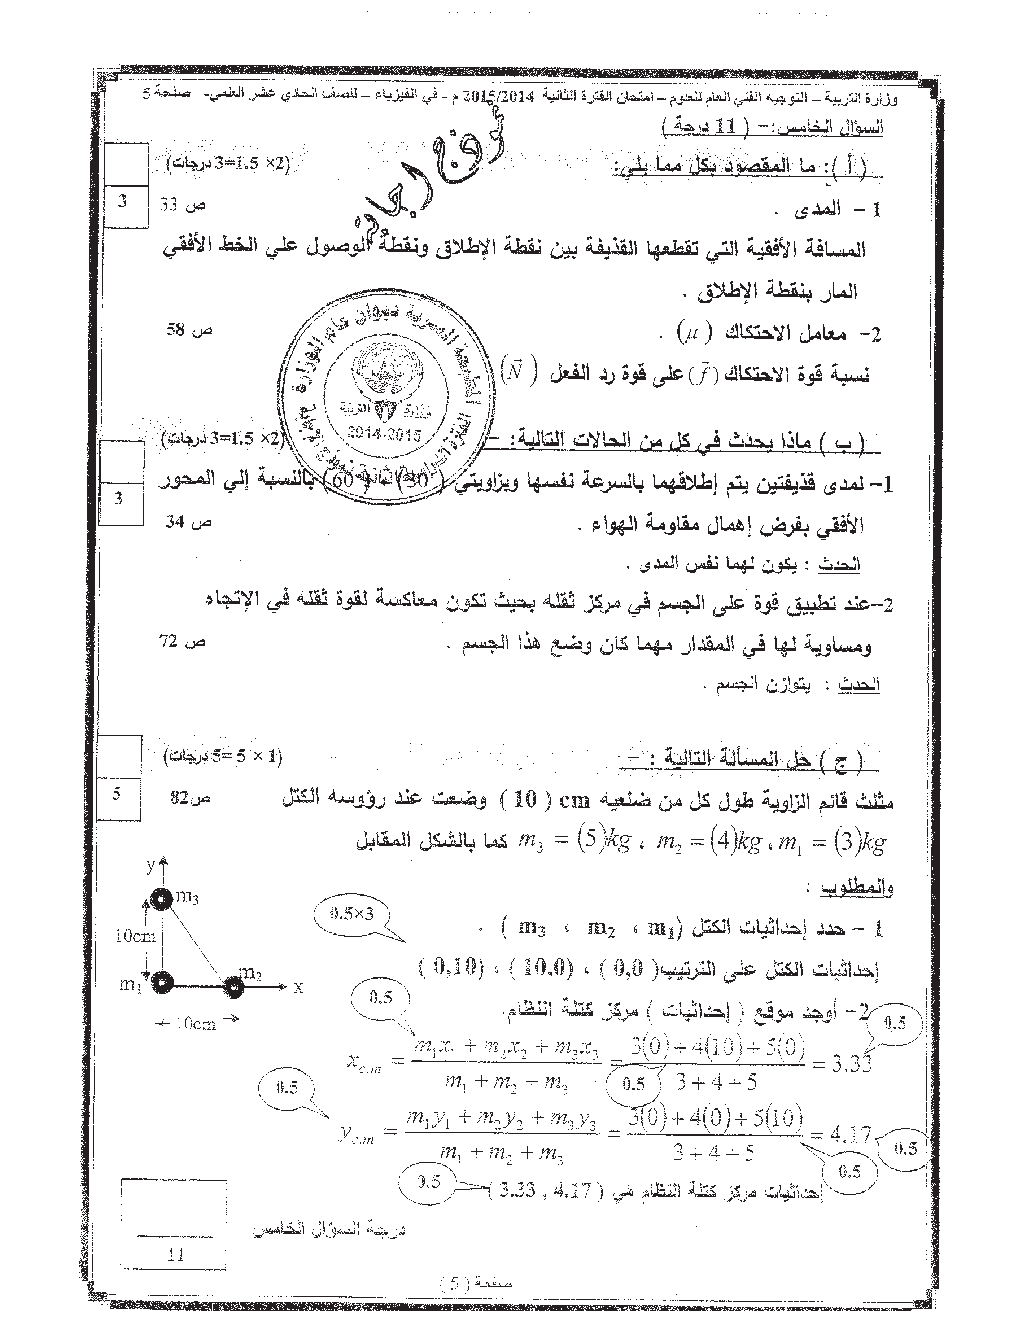 وزارة التربية – التوجيه الفني العام للعلوم – امتحان الفترة الثانية 2015/2014 م - في الفيزياء – للصف الحادي عشر العلمي- صفحة 5
السؤال الخامس:- ( 11 درجة )
( أ ): ما المقصود بكل مما يلي: (2× 1.5=3 درجات)
3
1 – المدى . ص 33
المسافة الأفقية التي تقطعها القذيفة بين نقطة الإطلاق ونقطة الوصول على الخط الأفقي
المار بنقطة الإطلاق .
2- معامل الاحتكاك (μ) . ص 58
نسبة قوة الاحتكاك (f) على قوة رد الفعل (N)
2014-2015
( ب ) ماذا يحدث في كل من الحالات التالية: – (2× 1.5=3 درجات)
3
1- لمدى قذيفتين يتم إطلاقهما بالسرعة نفسها وبزاويتي (30) ، (60) بالنسبة إلي المحور
الأفقي بفرض إهمال مقاومة الهواء . ص 34
الحدث : يكون لهما نفس المدى .
2–عند تطبيق قوة على الجسم في مركز ثقله بحيث تكون معاكسة لقوة ثقله في الإتجاه
ومساوية لها في المقدار مهما كان وضع هذا الجسم . ص 72
الحدث : يتوازن الجسم .
( ج ) حل المسألة التالية : – (1 × 5 =5 درجات)
5
مثلث قائم الزاوية طول كل من ضلعيه cm ( 10 ) وضعت عند رؤوسه الكتل ص82
m₁ = (3)kg ، m₂ = (4)kg ، m₃ = (5)kg كما بالشكل المقابل
والمطلوب :
y
m₃
10cm
m₁
m₂
x
10cm
1 – حدد إحداثيات الكتل (m₁ ، m₂ ، m₃ ) . 0.5×3
إحداثيات الكتل على الترتيب( 0,0 ) ، ( 10,0 ) ، ( 0,10 )
2- أوجد موقع ( إحداثيات ) مركز كتلة النظام.
0.5
0.5
x c.m = m₁x₁ + m₂x₂ + m₃x₃ / m₁ + m₂ + m₃ = 3(0)+4(10)+5(0) / 3+4+5 = 3.33
0.5
0.5
y c.m = m₁y₁ + m₂y₂ + m₃y₃ / m₁ + m₂ + m₃ = 3(0)+4(0)+5(10) / 3+4+5 = 4.17
0.5
0.5
إحداثيات مركز كتلة النظام هي ( 3.33 , 4.17 )
0.5
درجة السؤال الخامس
11
صفحة ( 5 )